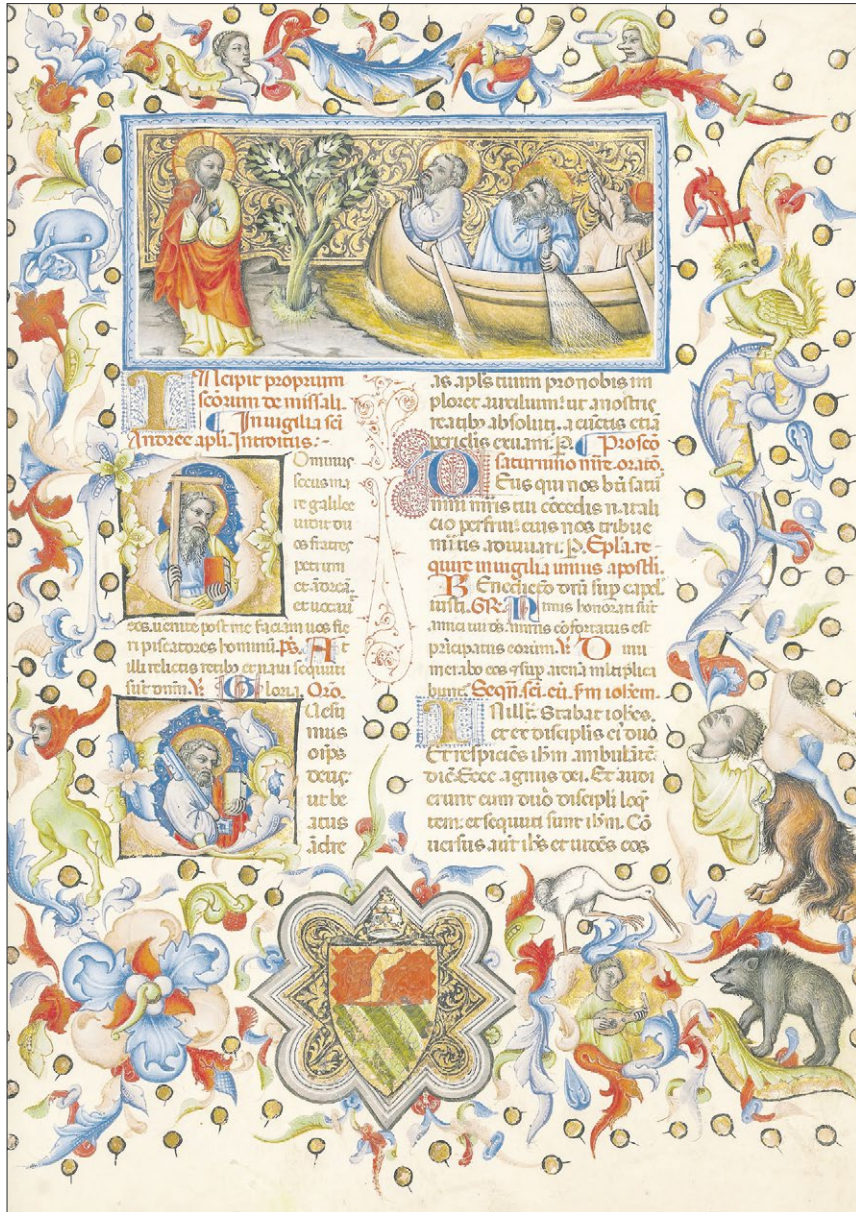 Incipit proprium
scorum de missali.
In uigilia sci
Andree apli. Introitus:-
Ominus
secus ma
re galilee
uidit du
os fratres
petrum
et adrea
et uocauit
eos. uenite post me faciam uos fie
ri piscatores hominu. ps. At
illi relictis retib et naui sequuti
sut dnm. V. Gloria. Oro.
Uesu
mus
oips
deus
ut be
atus
adre
as apls tuum pro nobis im
ploret auxilium: ut a nostris
reatib absoluti. a cuctis etia
periclis eruam. P. Pro sco
saturnino mre. orato.
Deus qui nos bti satu
nini mris tui cocedis natali
cio perfrui: eius nos tribue
mitis adiuuari. P. Epla re
quire in uigilia unius apostli.
Benedicto dni sup caput
iusti. GR. Nimis honorati sut
amici tui ds. nimis cofortatus est
pricipatus eorum. V. Dinnu
merabo eos et sup arena multiplica
bunt. Seqn. sci. eu. fm iohem.
In illt. Stabat iohes.
et ex disciplis ei duo
Et respicies ihm ambulate.
dic. Ecce agnus dei. Et audi
erunt eum duo discipli loq
tem: et sequuti sunt ihm. Co
uersus aut ihs et uides eos